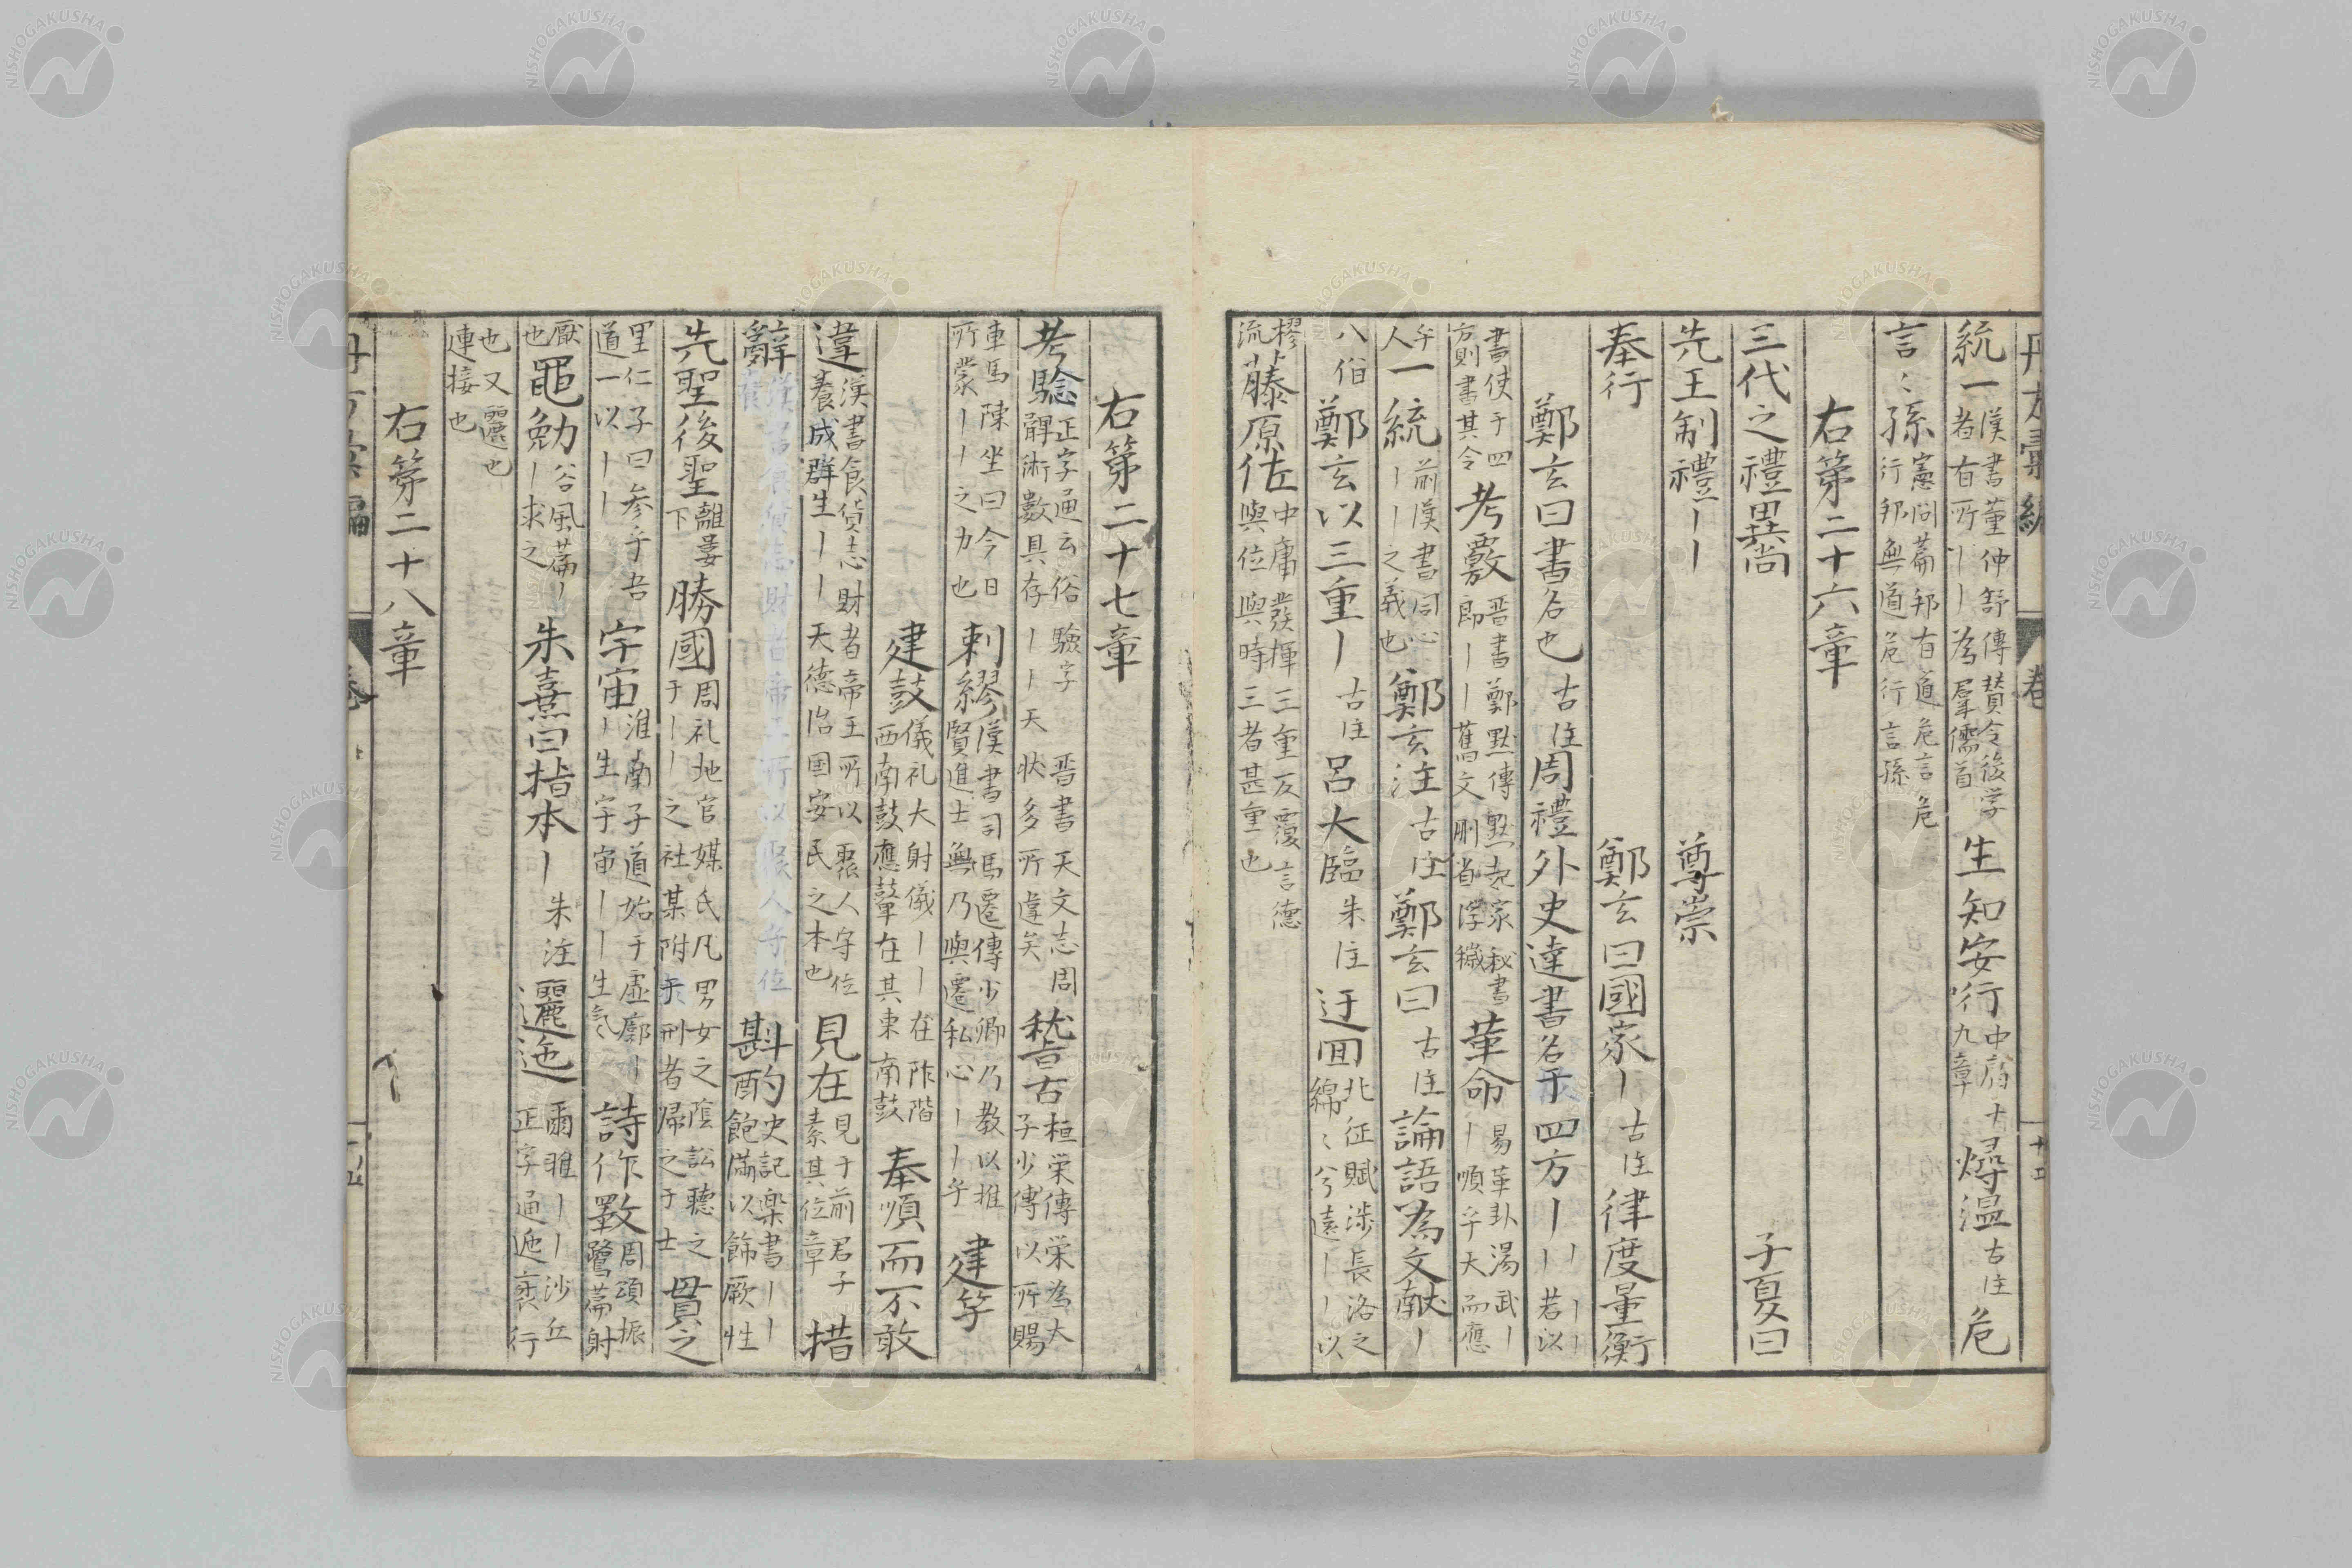 統一漢書董仲舒傳賛令後学者有所丨丨為羣儒首 生知安行中庸十九章 燖温古注 危
言〻孫憲問篇邦有道危言危行邦無道危行言孫
右第二十六章
三代之禮異尚 子夏曰
先王制禮丨丨 尊崇
奉行 鄭玄曰國家丨古注 律度量衡
鄭玄曰書名也古注 周禮外史達書名于四方丨丨丨丨丨若以
書使于四方則書其令 考覈晋書鄭默傳默起家秘書郎丨丨舊文刪省浮穢 革命易革卦湯武丨丨順乎天而應
乎人 一統前漢書同心丨丨之義也 鄭玄注古注 鄭玄曰古注 論語為文献丨
八佾 鄭玄以三重丨古注 呂大臨朱注 迂回北征賦涉長洛之綿〻兮遠丨丨以
樛流 藤原佐中庸發揮三重反覆言德與位與時三者甚重也
右第二十七章
考驗正字通云俗驗字 辭術數具存丨丨天晋書天文志周状多所違矣 稽古桓栄傳栄為太子少傳以所賜
車馬陳坐曰今日所蒙丨丨之力也 刺繆漢書司馬遷傳少卿乃教以推賢進士無乃與遷私心丨丨乎 建竿
建鼓儀礼大射儀丨丨在阼階西南鼓應鼙在其東南鼓 奉順而不敢
違漢書食貨志財者帝王所以聚人守位養成群生丨丨天德治国安民之本也 見在見于前君子素其位章 措
辭 斟酌史記楽書丨丨飽滿以飾厥性
先聖後聖離婁下 勝國周礼地官媒氏凡男女之陰訟聽之于丨丨之社某附于刑者帰之于士 貫之
里仁子曰参乎吾道一以丨丨 宇宙淮南子道始于虚廓丨丨生宇宙丨丨生気 詩作斁周頌振鷺篇射
厭也 黽勉谷風篇丨丨求之 朱熹曰指本丨朱注 邐迤爾雅丨丨沙丘正字通迤衺行
也又邐也連接也
右第二十八章